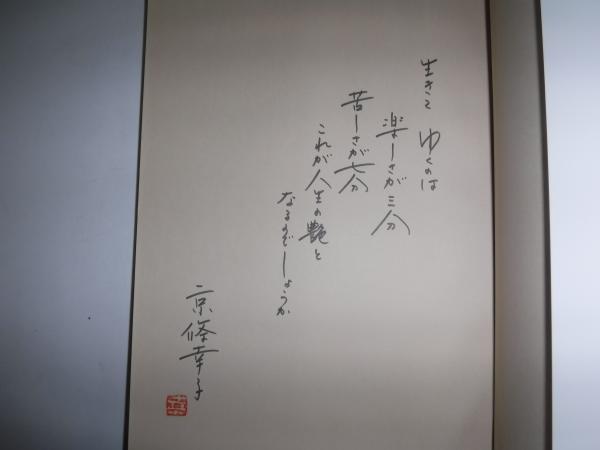 生きて ゆくのは
楽しさが三分
苦しさが七分
これが人生の艶と
なるのでしょうか
京條幸子